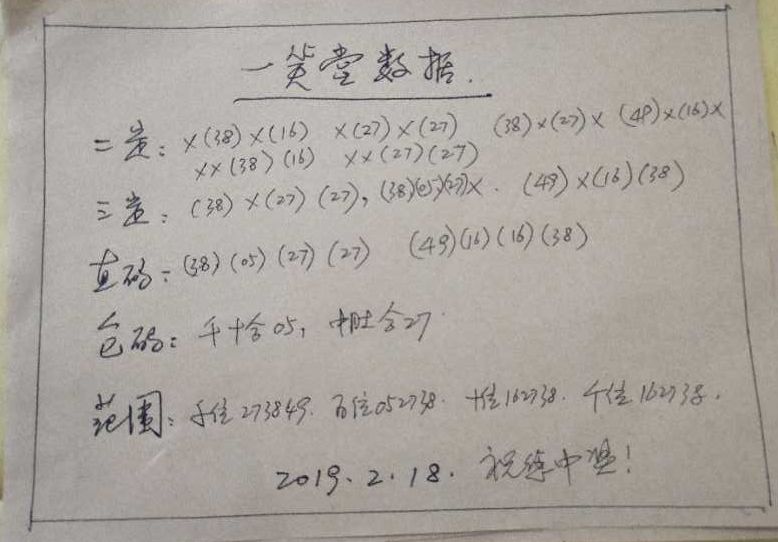 一笑堂数据.
二定: ×(38)×(16) ×(27)×(27) (38)×(27)× (49)×(16)×
××(38)(16) ××(27)(27)
三定: (38)×(27)(27), (38)(05)(27)×. (49)×(16)(38)
直码: (38)(05)(27)(27) (49)(16)(16)(38)
包码: 千十合05, 中肚合27.
范围: 千位273849. 百位052738. 十位162738. 个位162738.
2019.2.18. 祝你中奖!